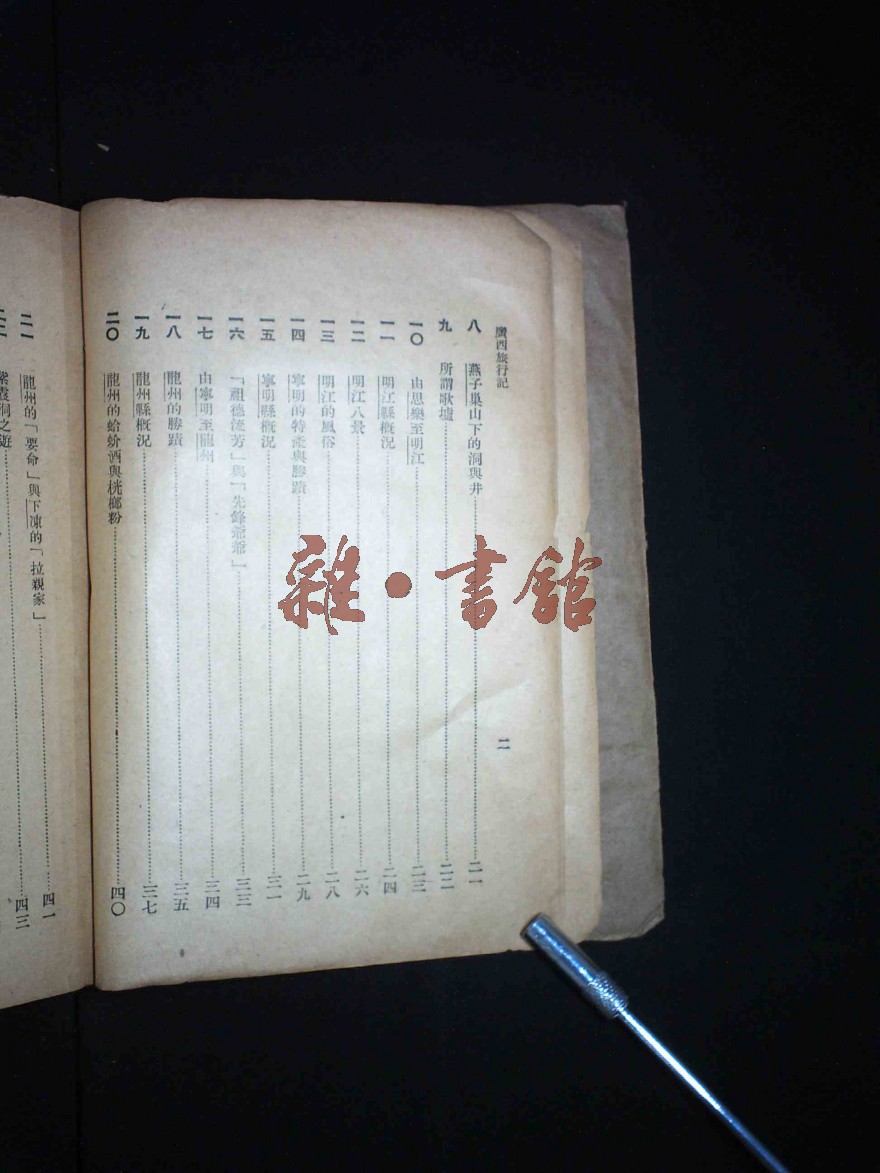 廣西旅行記
八 燕子巢山下的洞與井 二一
九 所謂歌墟 二二
一〇 由思樂至明江 二三
一一 明江縣概況 二四
一二 明江八景 二六
一三 明江的風俗 二八
一四 寧明的特產與勝蹟 二九
一五 寧明縣概況 三一
一六 「祖德流芳」與「先鋒爺爺」 三三
一七 由寧明至龍州 三四
一八 龍州的勝蹟 三五
一九 龍州縣概況 三七
二〇 龍州的蛤蚧酒與桄榔粉 四〇
二
二一 龍州的「要命」與下凍的「拉親家」 四一
二二 紫霞洞之遊 四三
雜·書館